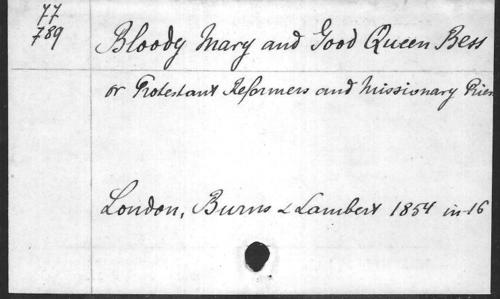 77
789
Bloody Mary and Good Queen Bess
or Protestant Reformers and Missionary Prien
London, Burns & Lambert 1854 in-16